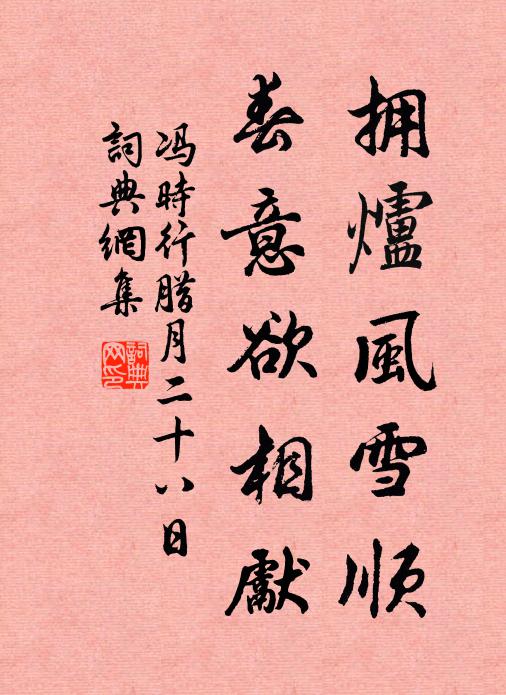 拥爐風雪順
春意欲相獻
冯時行腊月二十八日
詞典網集
詞典网印